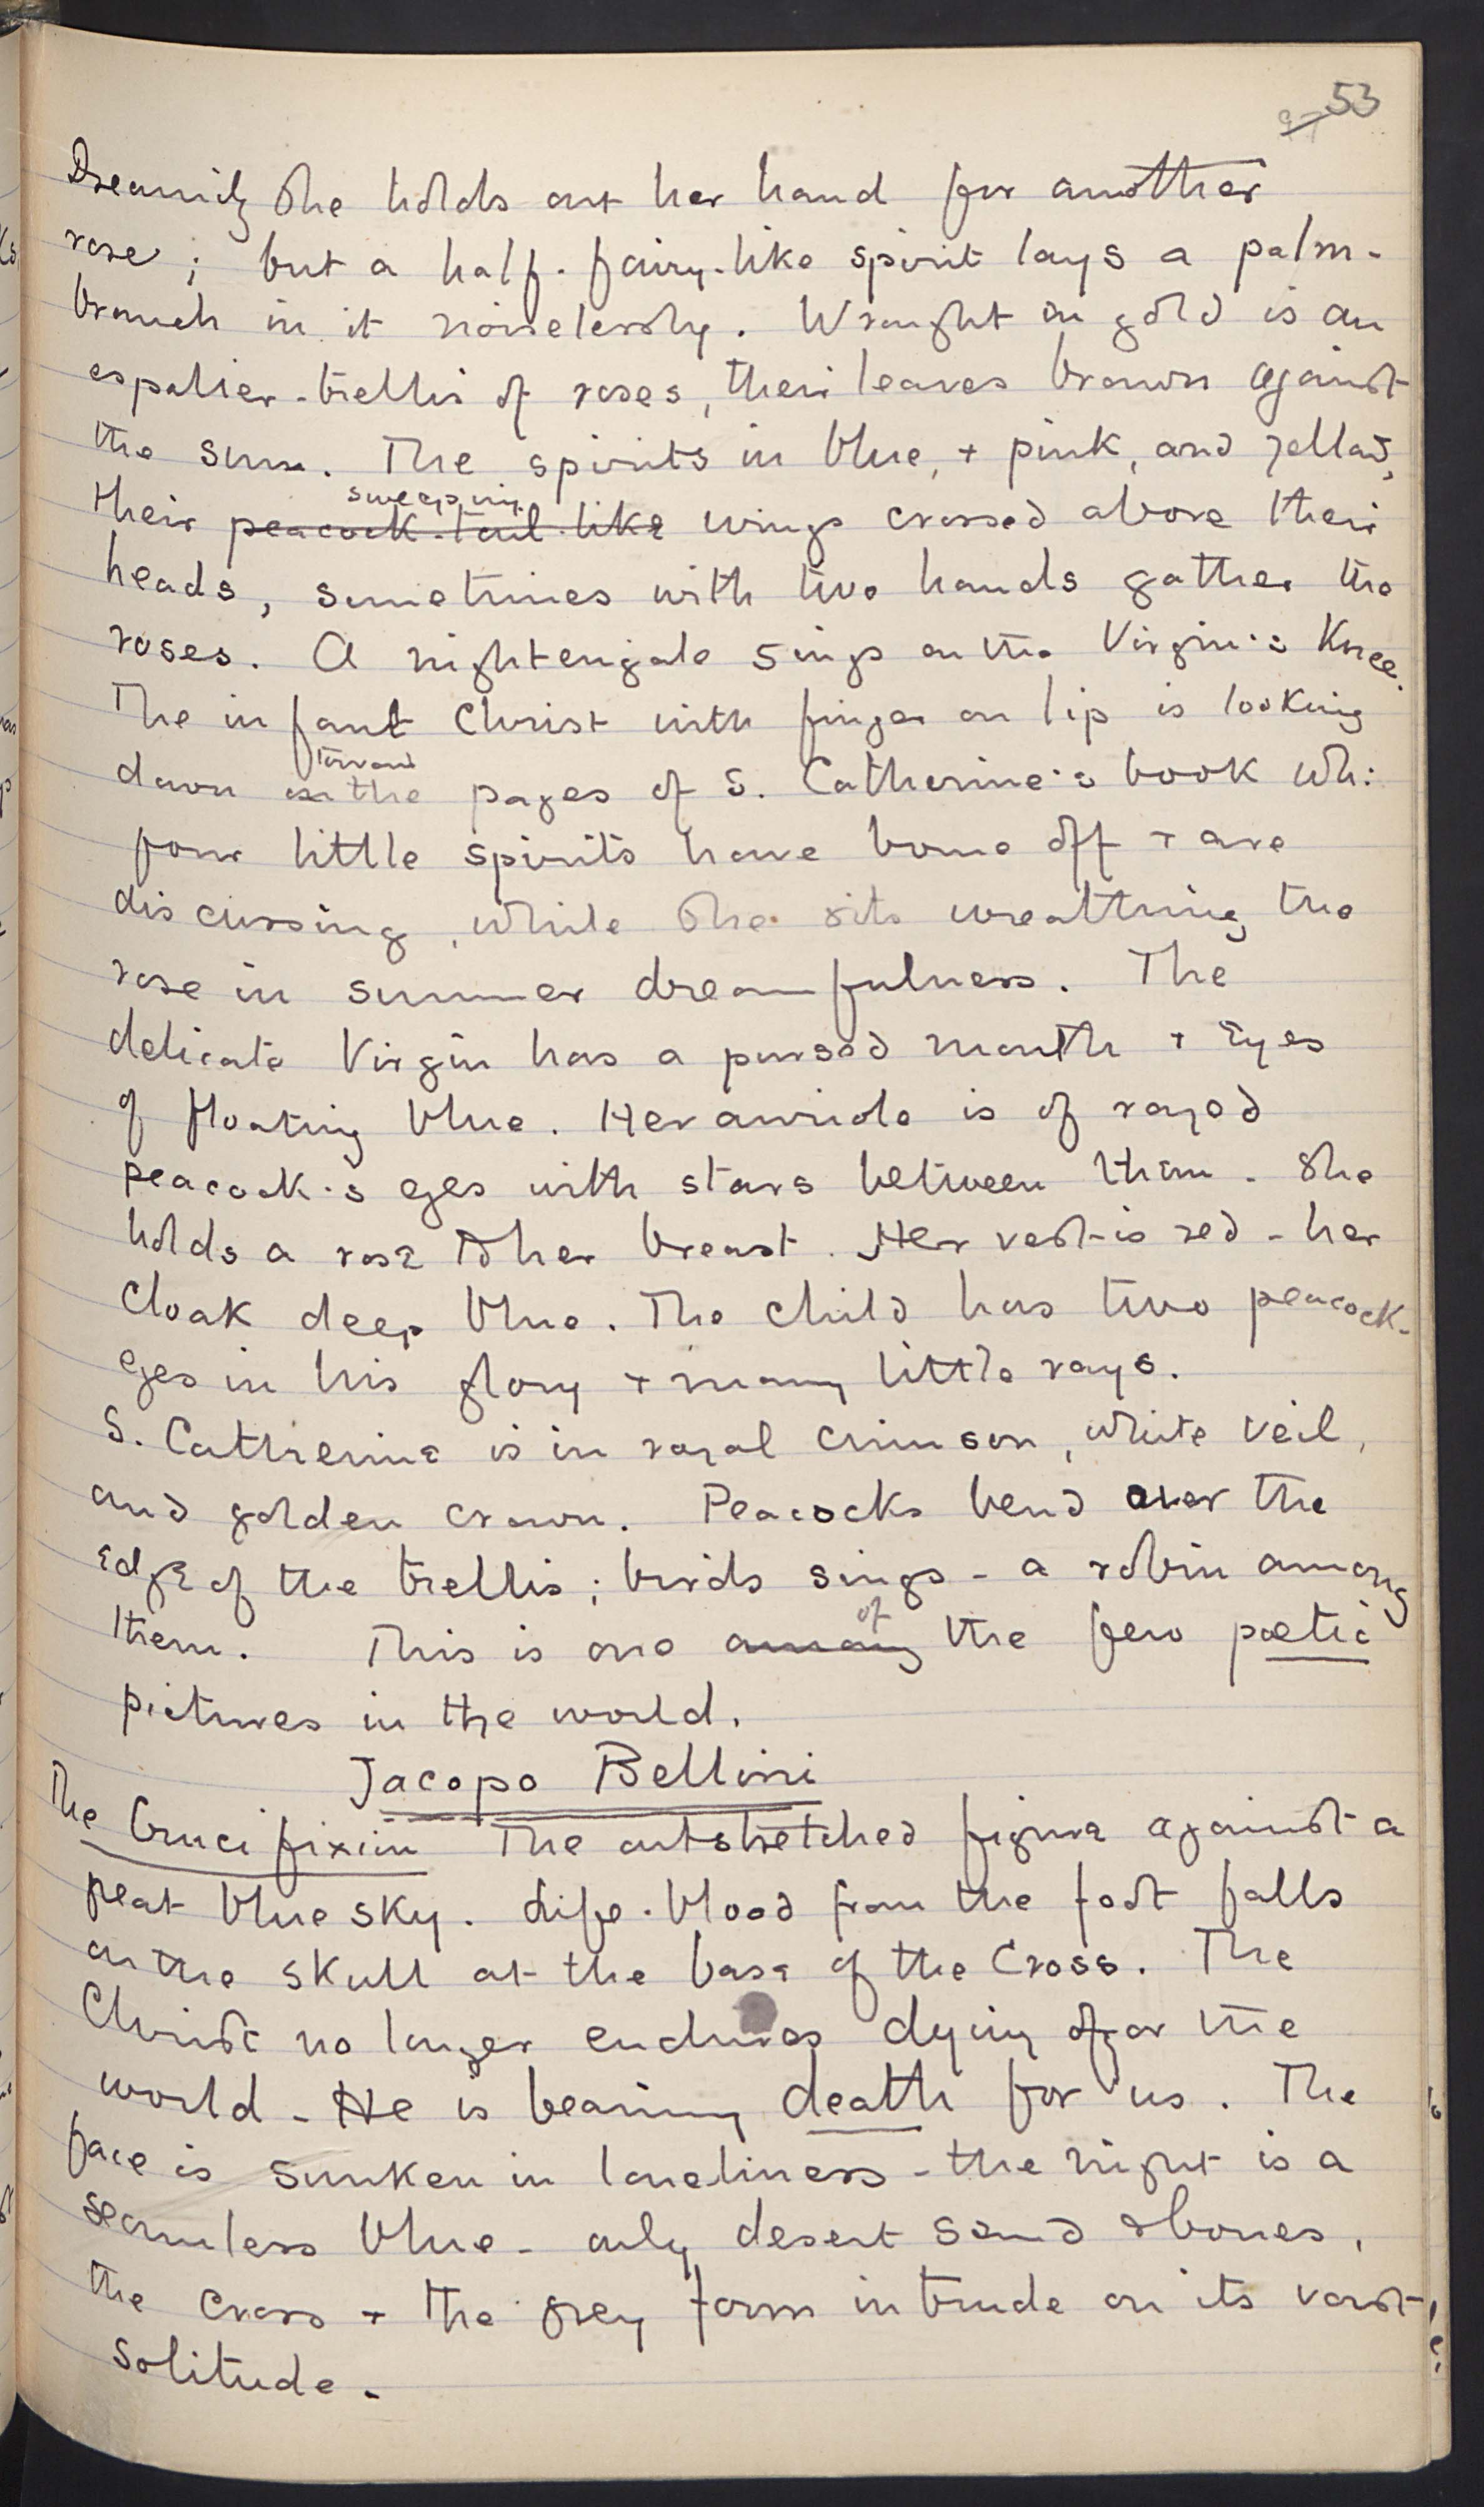 53
Dreamily she holds out her hand for another
rose; but a half-fairy-like spirit lays a palm-
branch in it noiselessly. Wrought in gold is an
espalier-trellis of roses, their leaves brown against
the sun. The spirits in blue, + pink, and yellow,
sweeping
their peacock-tail-like wings crossed above their
heads, sometimes with two hands gather the
roses. A nightengale sings on the Virgin's Knee.
The infant Christ with finger on lip is looking
toward
down on the pages of S. Catherine's book wh:
four little spirits have borne off + are
discussing, while she sits wreathing the
rose in summer dreamfulness. The
delicate Virgin has a pursed mouth + Eyes
of floating blue. Her aureole is of rayed
peacock's eyes with stars between them. She
holds a rose to her breast. Her vest is red - her
Cloak deep blue. The Child has two peacock-
eyes in his glory + many little rays.
S. Catherine is in royal crimson, white veil,
and golden crown. Peacocks bend over the
Edge of the trellis; birds sings - a robin among
of
them. This is one among the few poetic
pictures in the world.
Jacopo Bellini
The Crucifixion The outstretched figure against a
great blue sky. Life-blood from the foot falls
on the skull at the base of the Cross. The
Christ no longer endures dying for the
world - He is bearing death for us. The
face is sunken in loneliness - the night is a
seamless blue - only desert sand & bones,
the cross + the grey form intrude on its vast
solitude.